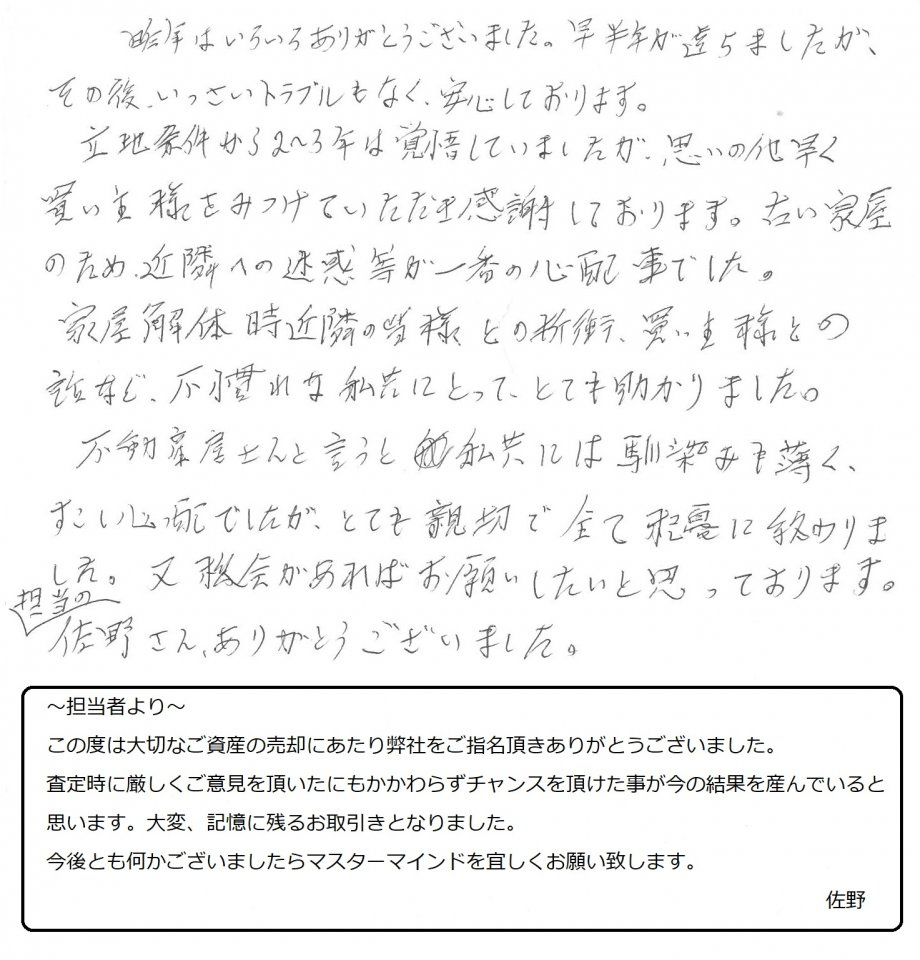 昨年はいろいろありがとうございました。早半年が過ぎましたが、
その後、いっさいトラブルもなく、安心しております。
立地条件から2~3年は覚悟していましたが、思いの他早く
買い主様をみつけていただき感謝しております。古い家屋
のため、近隣への迷惑等が一番の心配事でした。
家屋解体時近隣の皆様との折衝、買い主様との
話など、不慣れな私共にとって、とても助かりました。
不動産屋さんと言うと私共には馴染みも薄く、
すこし心配でしたが、とても親切で全て に終わりま
した。又機会があればお願いしたいと思っております。
担当の
佐野さん、ありがとうございました。
~担当者より~
この度は大切なご資産の売却にあたり弊社をご指名頂きありがとうございました。
査定時に厳しくご意見を頂いたにもかかわらずチャンスを頂けた事が今の結果を産んでいると
思います。大変、記憶に残るお取引きとなりました。
今後とも何かございましたらマスターマインドを宜しくお願い致します。
佐野